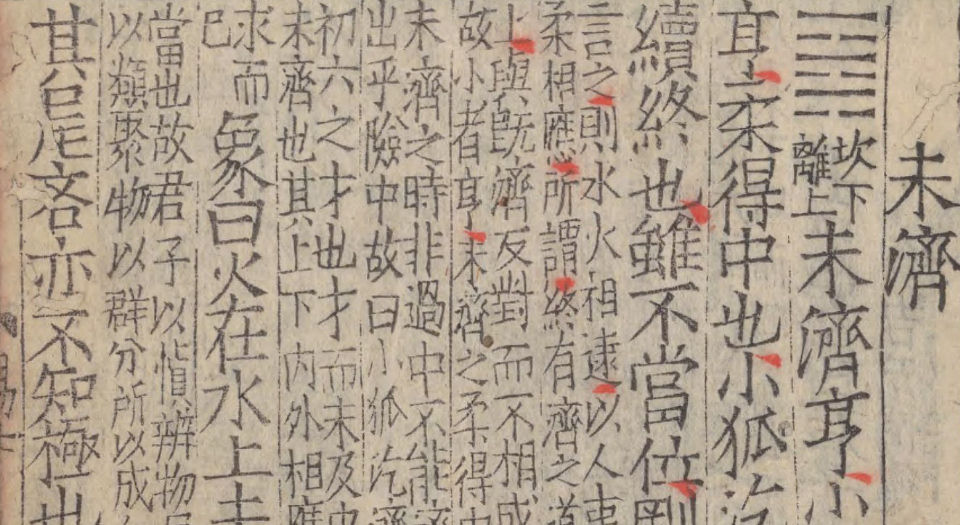 未濟
䷿
坎下
離上
未濟亨小
亨柔得中也小狐汔
續終也雖不當位剛
言之則水火相逮以人事
柔相應所謂終有濟之道
上與旣濟反對而不相成
故小者亨未濟之柔得中
未濟之時非過中不能濟
出乎險中故曰小狐汔濟
初六之才也才而未及中
未濟也其上下内外相應
求而
已
象曰火在水上未
當也故君子以慎辨物居
以類聚物以群分所以成
其尾吝亦不知極也